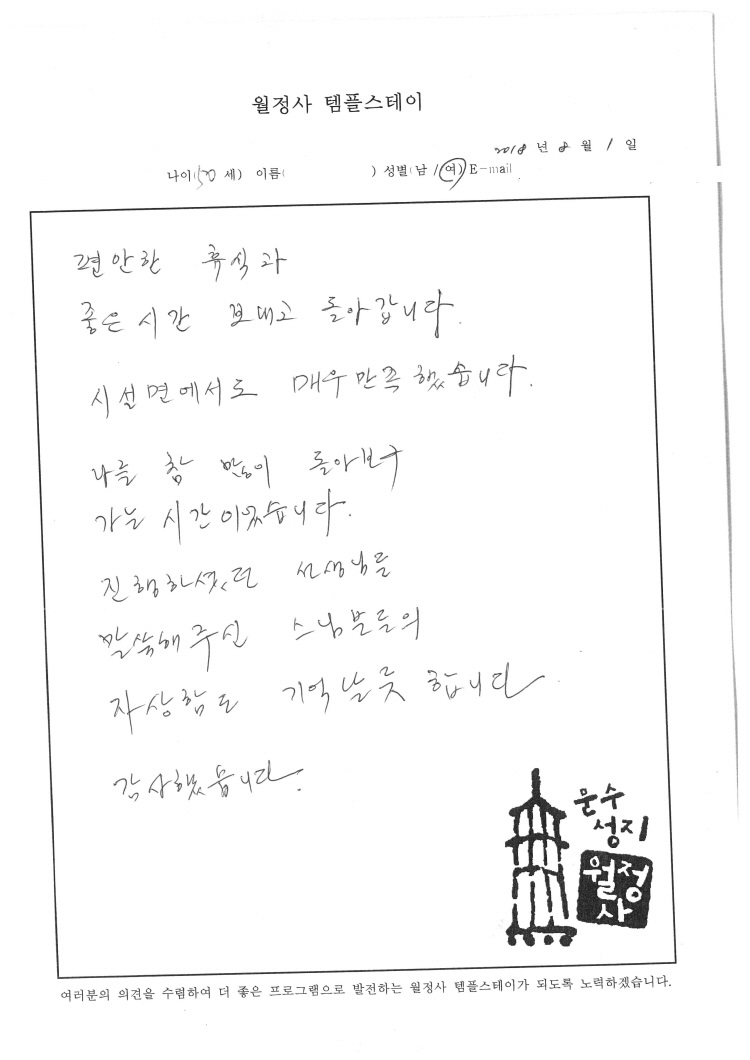 월정사 템플스테이
2018 년 8 월 1 일
나이(50 세) 이름( ) 성별(남/여) E-mail
편안한 휴식과
좋은 시간 보내고 돌아갑니다.
시설면에서도 매우 만족했습니다.
나를 참 많이 돌아보구
가는 시간이었습니다.
진행하셨던 선생님들
말씀해 주신 스님분들의
자상함도 기억날듯 합니다
감사했습니다.
문수
성지
월정
사
여러분의 의견을 수렴하여 더 좋은 프로그램으로 발전하는 월정사 템플스테이가 되도록 노력하겠습니다.